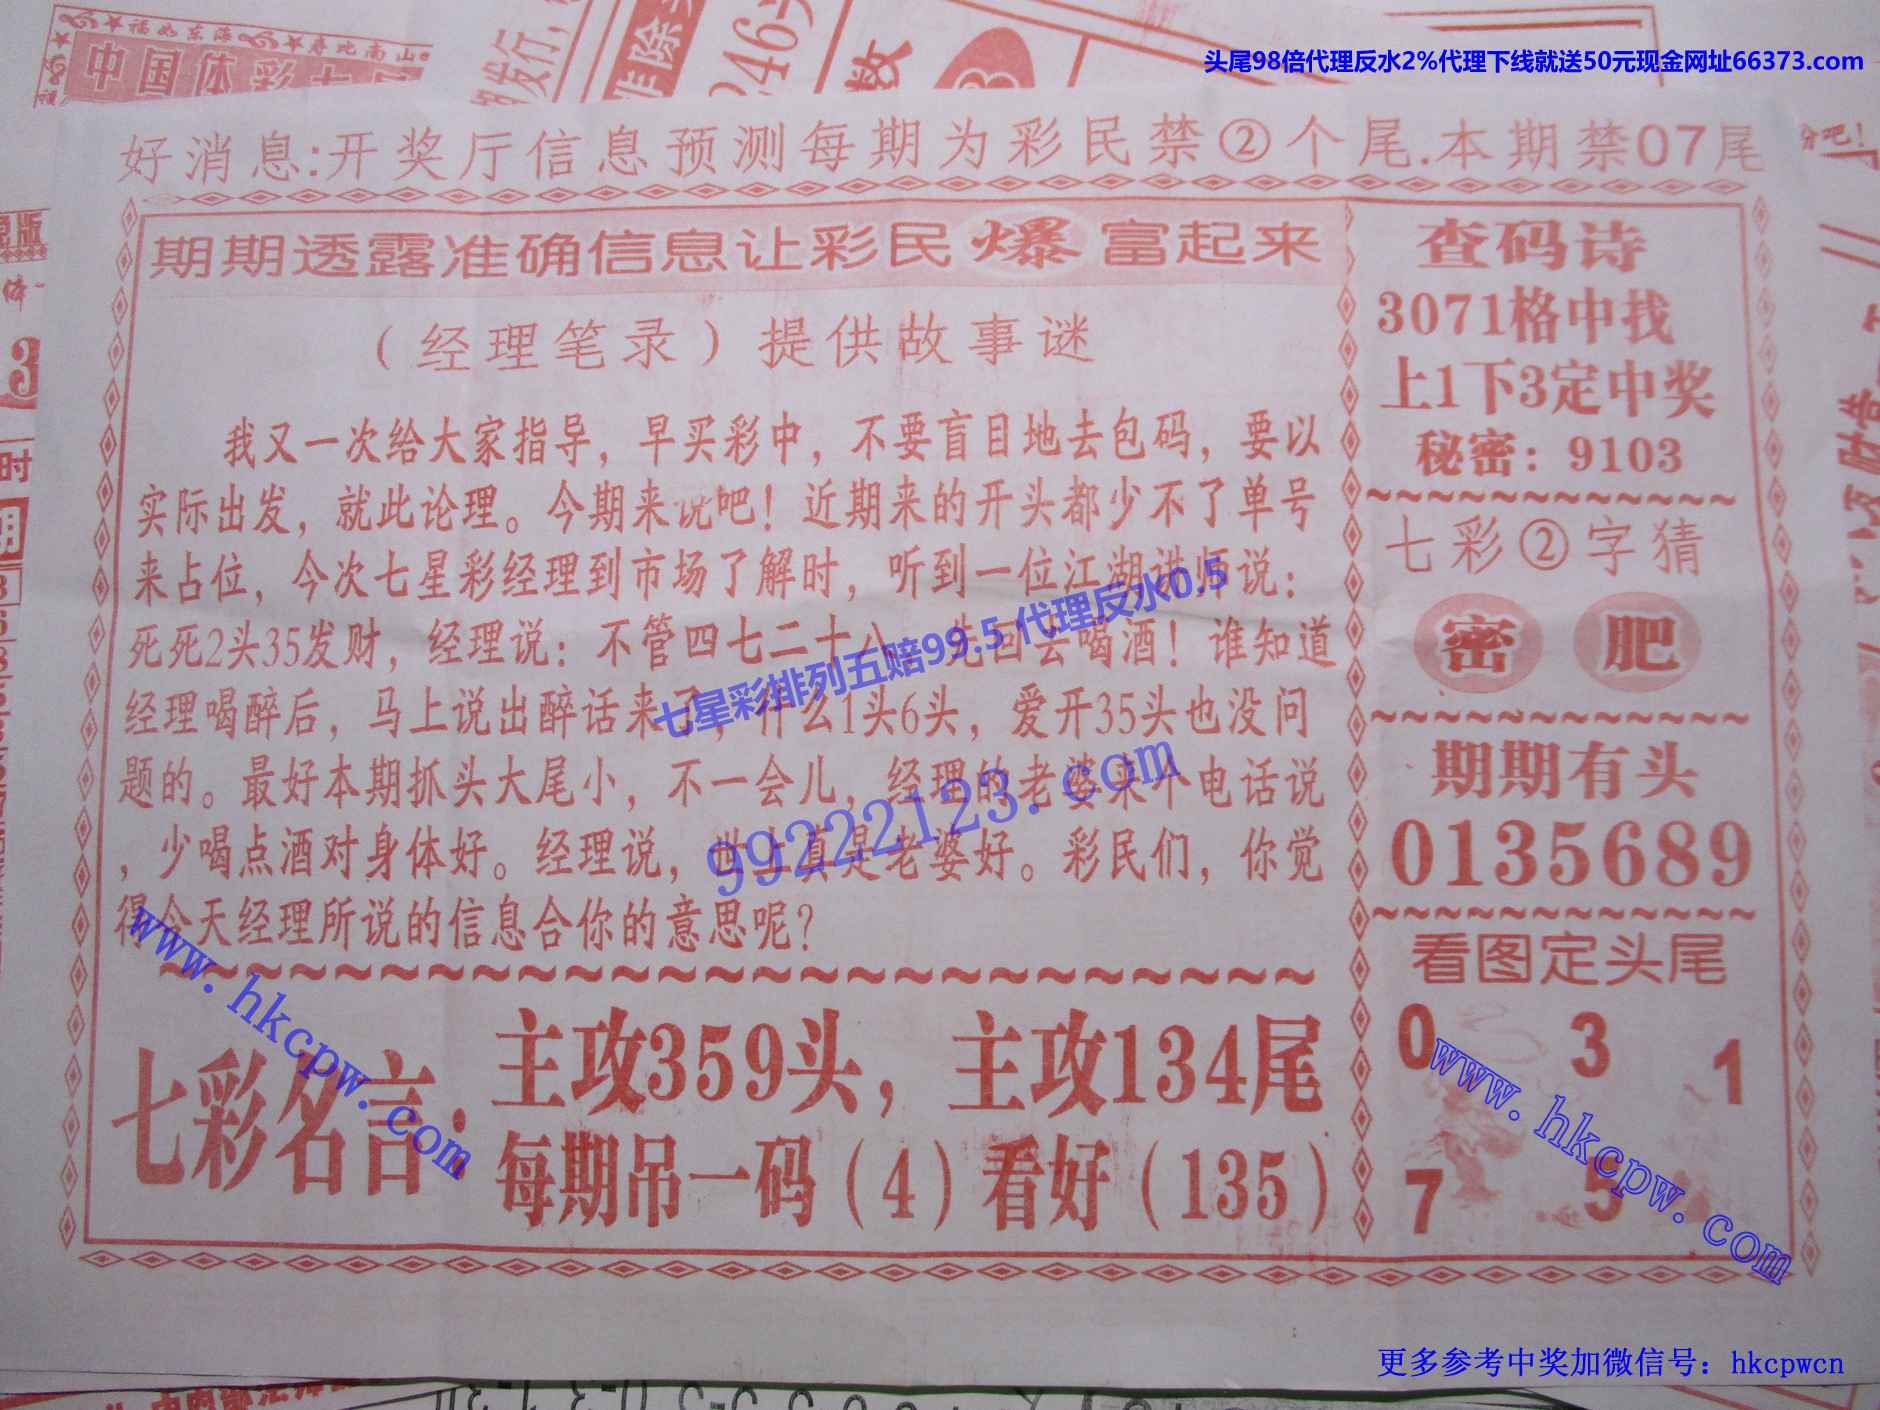 头尾98倍代理反水2%代理下线就送50元现金网址66373.com
福如东海 寿比南山
中国体彩七
发行,
准除
246头
数
好消息:开奖厅信息预测每期为彩民禁②个尾.本期禁07尾
期期透露准确信息让彩民爆富起来
（经理笔录）提供故事谜
我又一次给大家指导，早买彩中，不要盲目地去包码，要以
实际出发，就此论理。今期来说吧！近期来的开头都少不了单号
来占位，今次七星彩经理到市场了解时，听到一位江湖讲师说：
死死2头35发财，经理说：不管四七二十八 先回去喝酒！谁知道
经理喝醉后，马上说出醉话来了，什么1头6头，爱开35头也没问
题的。最好本期抓头大尾小，不一会儿，经理的老婆来个电话说
，少喝点酒对身体好。经理说，世上真是老婆好。彩民们，你觉
得今天经理所说的信息合你的意思呢？
七星彩排列五赔99.5 代理反水0.5
99222123.com
www.hkcpw.com
七彩名言：
主攻359头，主攻134尾
每期吊一码（4）看好（135）
查码诗
3071格中找
上1下3定中奖
秘密：9103
七彩②字猜
密 肥
期期有头
0135689
看图定头尾
0 3 1
7 5
www.hkcpw.com
更多参考中奖加微信号：hkcpwcn